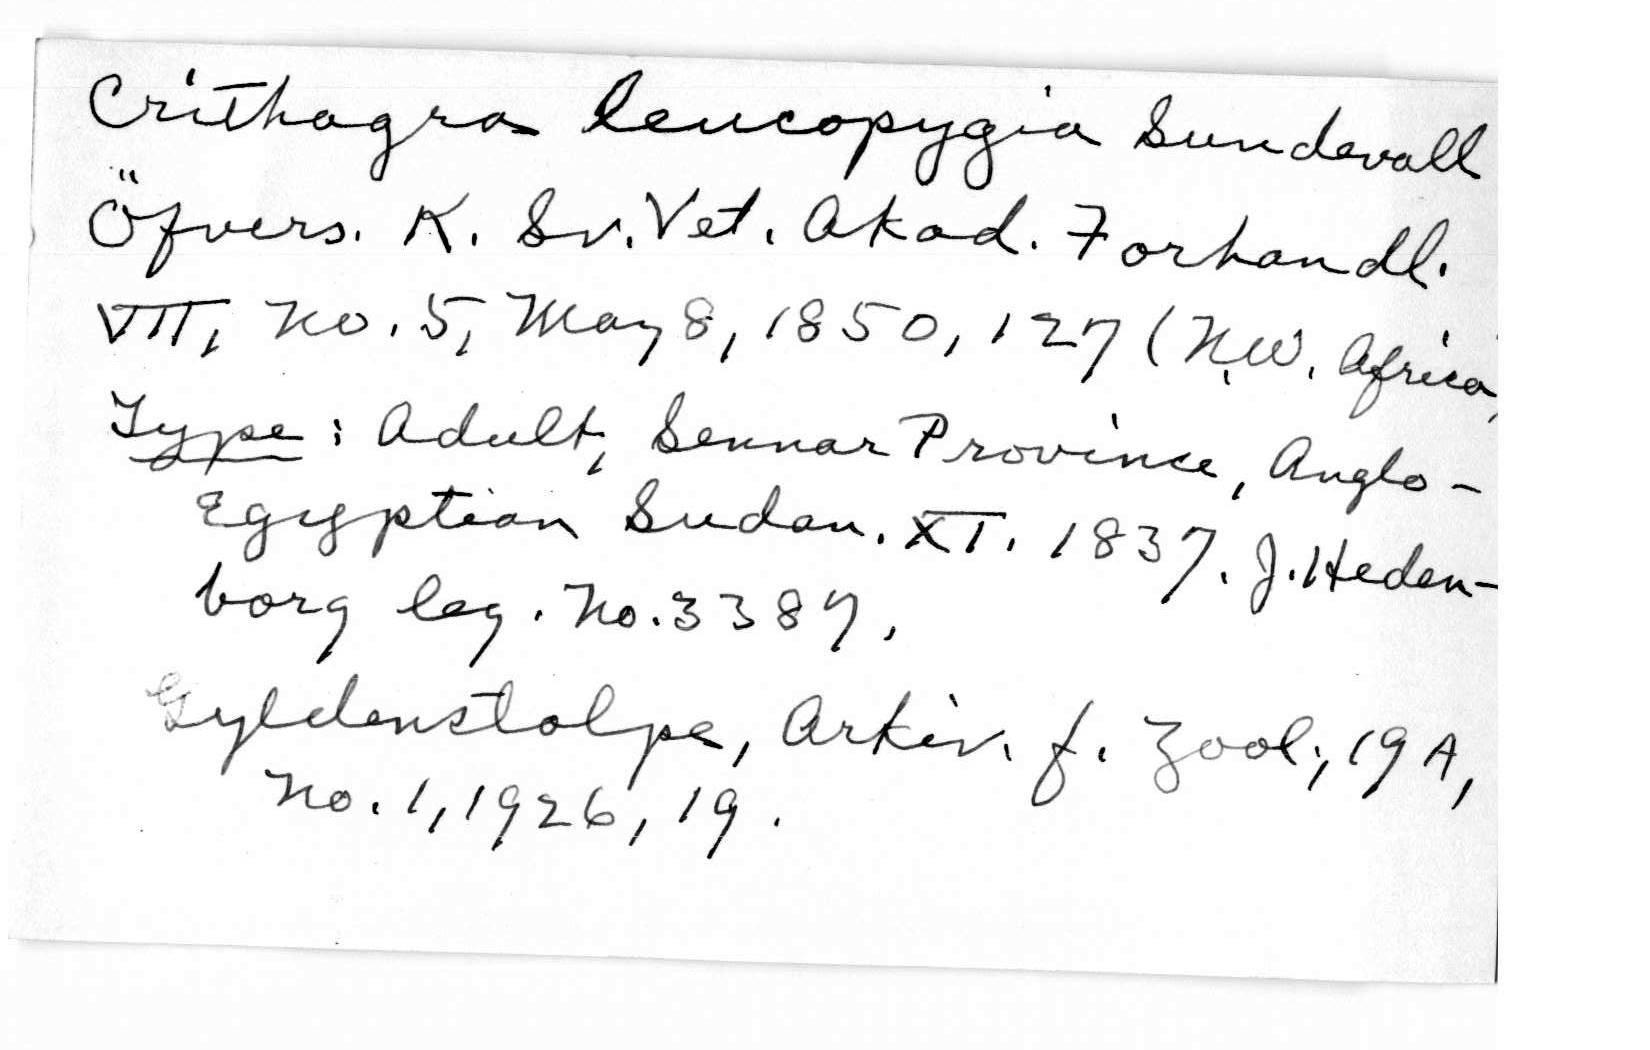 Crithagra leucopygia Sundevall
Öfvers. K. Sv. Vet. Akad. Forhandl.
VII, No. 5, May 8, 1850, 127 (N.W. Africa)
Type: Adult, Sennar Province, Anglo-
Egyptian Sudan. XI. 1837. J. Heden-
borg leg. No. 3387.
Gyldenstolpe, Arkiv. f. Zool., 19A,
No. 1, 1926, 19.